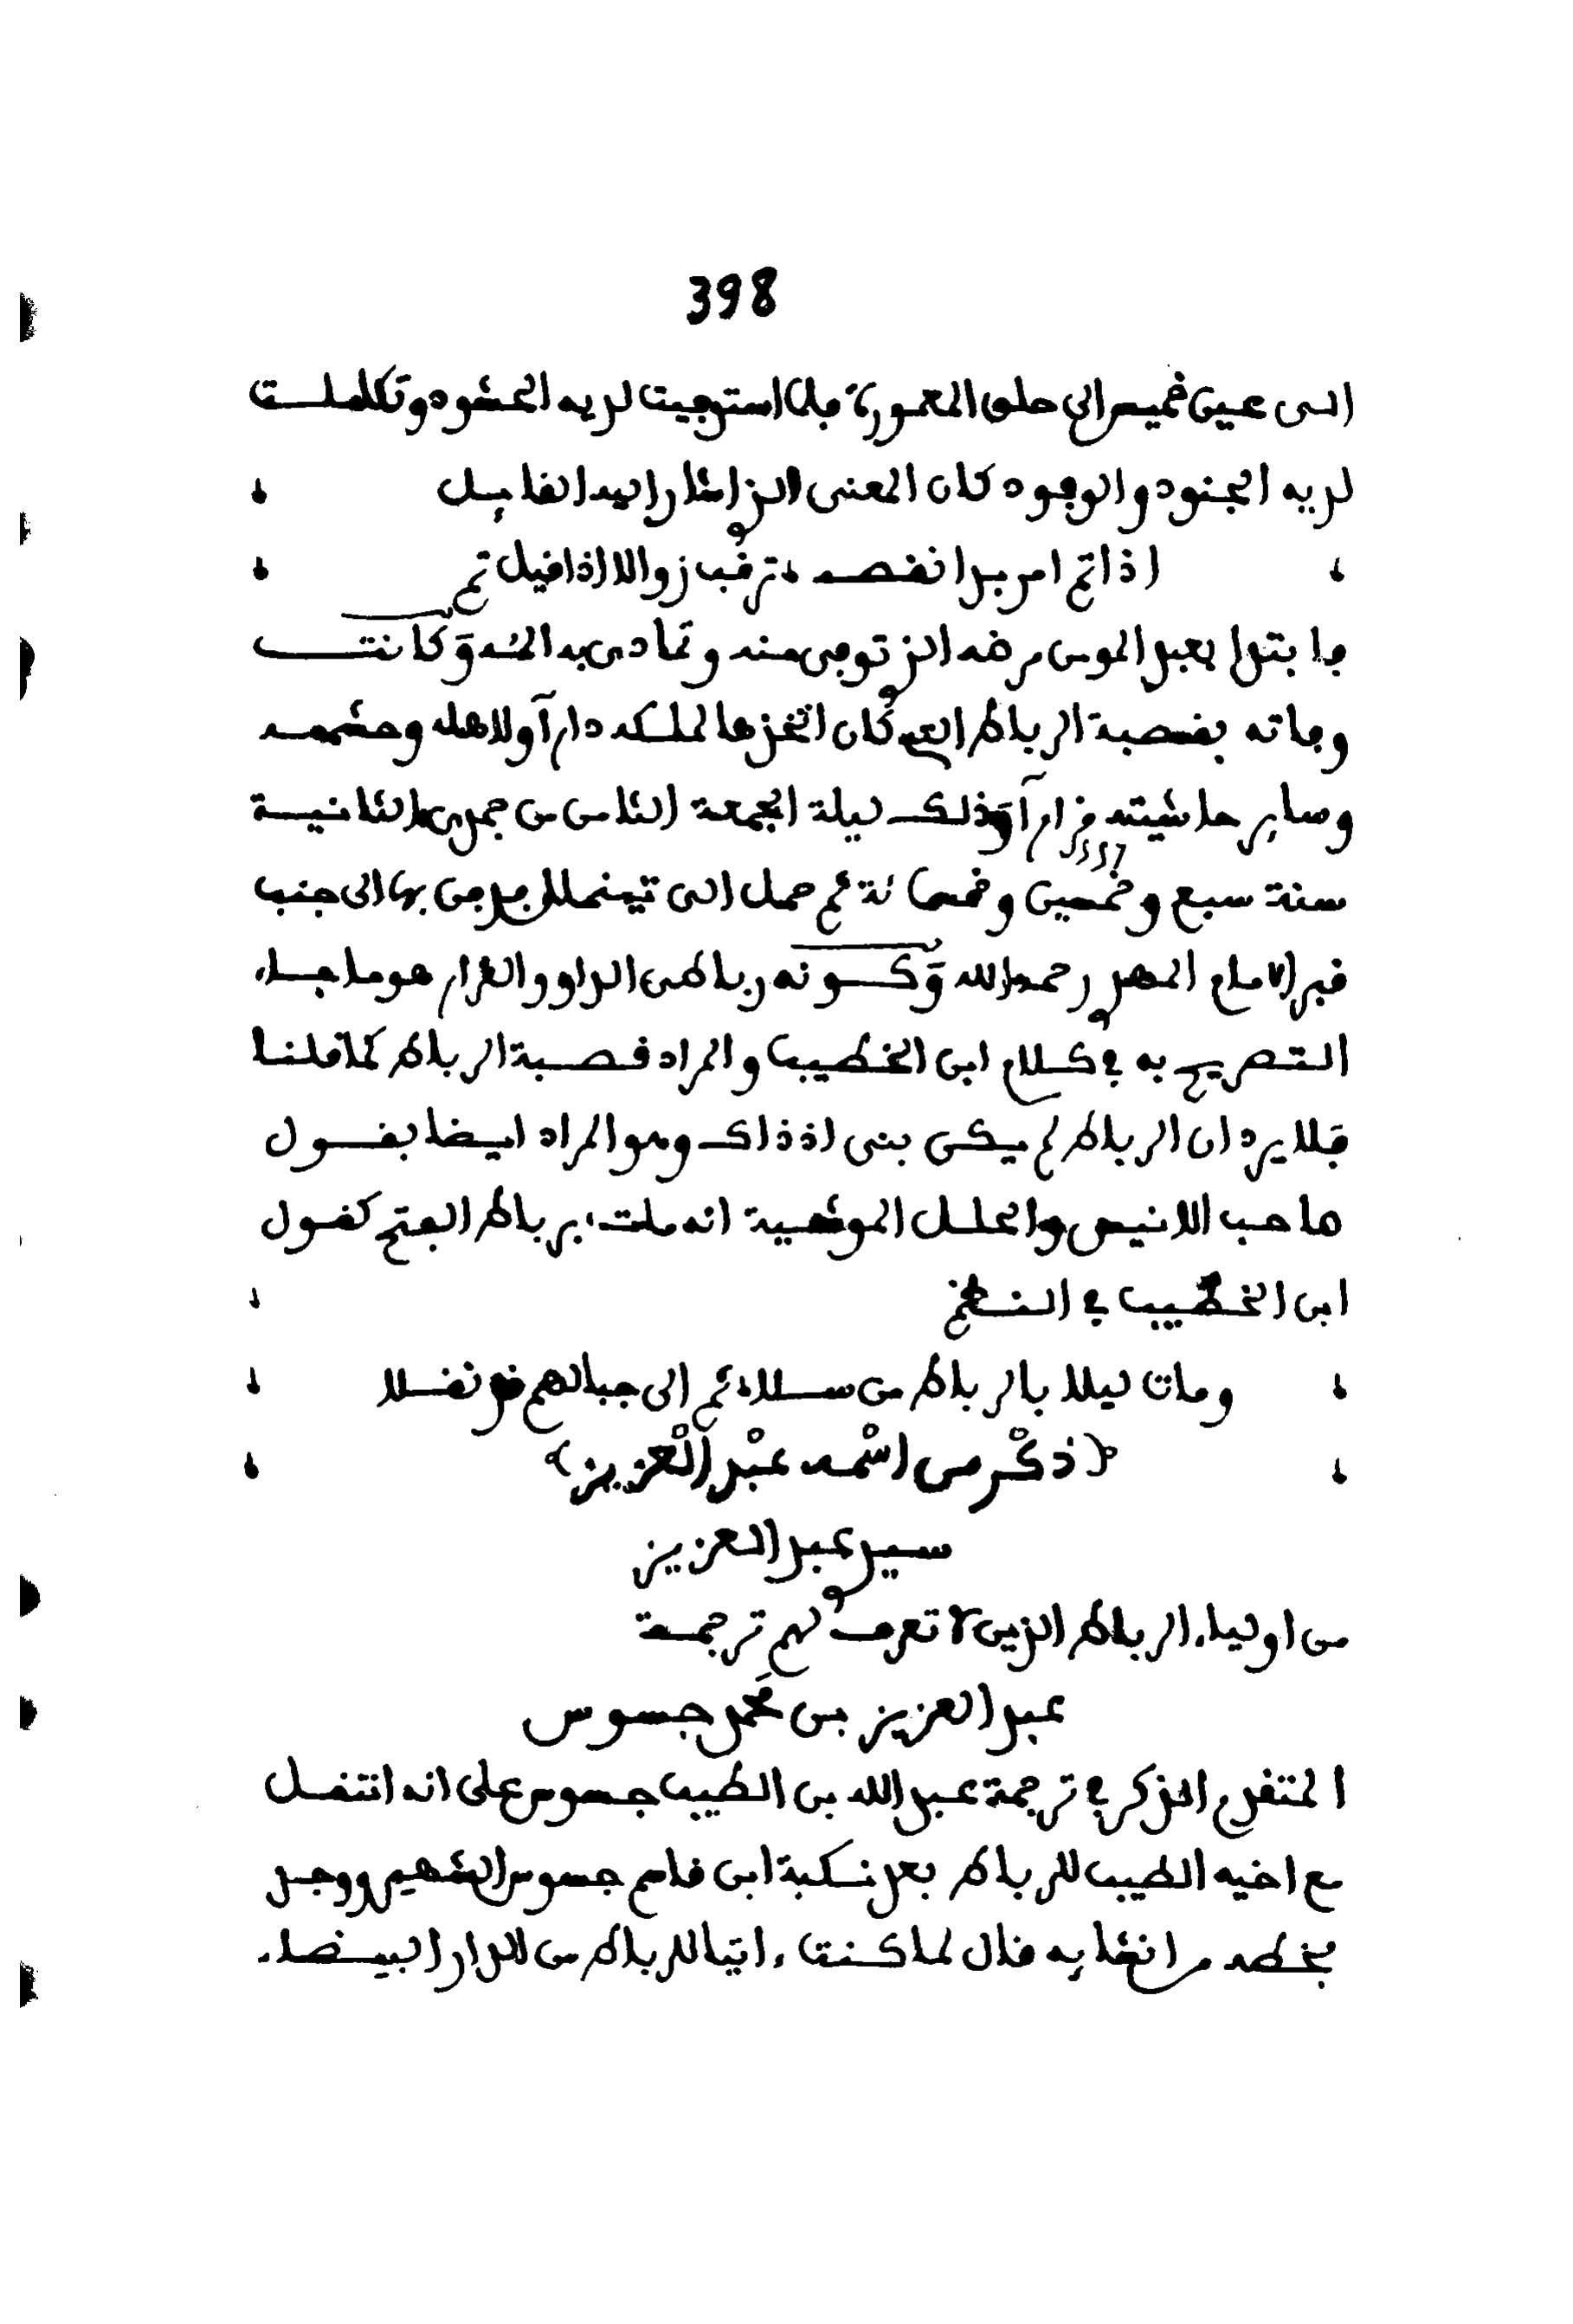 398
الى عين خميس الى حلق المعمورة فلما استوفيت لديه الحشود وتكاملت
لديه الجنود والوفود كان المعنى الذي اشار اليه القايل
اذا تم امر بدا نقصه ترقب زوالا اذا قيل تم
فابتدا بعبد المومن مرضه الذي توفي منه وتمادى به المه وكانت
وفاته بقصبة الرباط التي كان اتخذها لملكه دارا ولاهله وحشمه
وساير حاشيته قرارا وذلك ليلة الجمعة الثامن من جمدى الثانية
سنة سبع وخمسين وخمسمائة ثم حمل الى تينملل فدفن بها الى جنب
قبر الامام المهدي رحمه الله وكونه رباطي الدار والقرار هو ما جاء
التصريح به في كلام ابن الخطيب والمراد قصبة الرباط كما قلنا
فلا يرد ان الرباط لم يكن بني اذ ذاك وهو المراد ايضا بقول
صاحب الانيس والحلل الموشية انه مات برباط الفتح كقول
ابن الخطيب في النظم
ومات ليلا بالرباط من سلا ثم الى جبالهم قد نقلا
(ذكْر من اسْمه عبْد الْعزيز)
سيدي عبد العزيز
من اولياء الرباط الذين لا تعرف لهم ترجمة
عبد العزيز بن محمد جسوس
المتقدم الذكر في ترجمة عبد الله بن الطيب جسوس على انه انتقل
مع اخيه الطيب للرباط بعد نكبة ابن قاسم جسوس الشهير ووجد
بخطه من انشايه قال لما كنت ءاتيا للرباط من الدار البيضاء